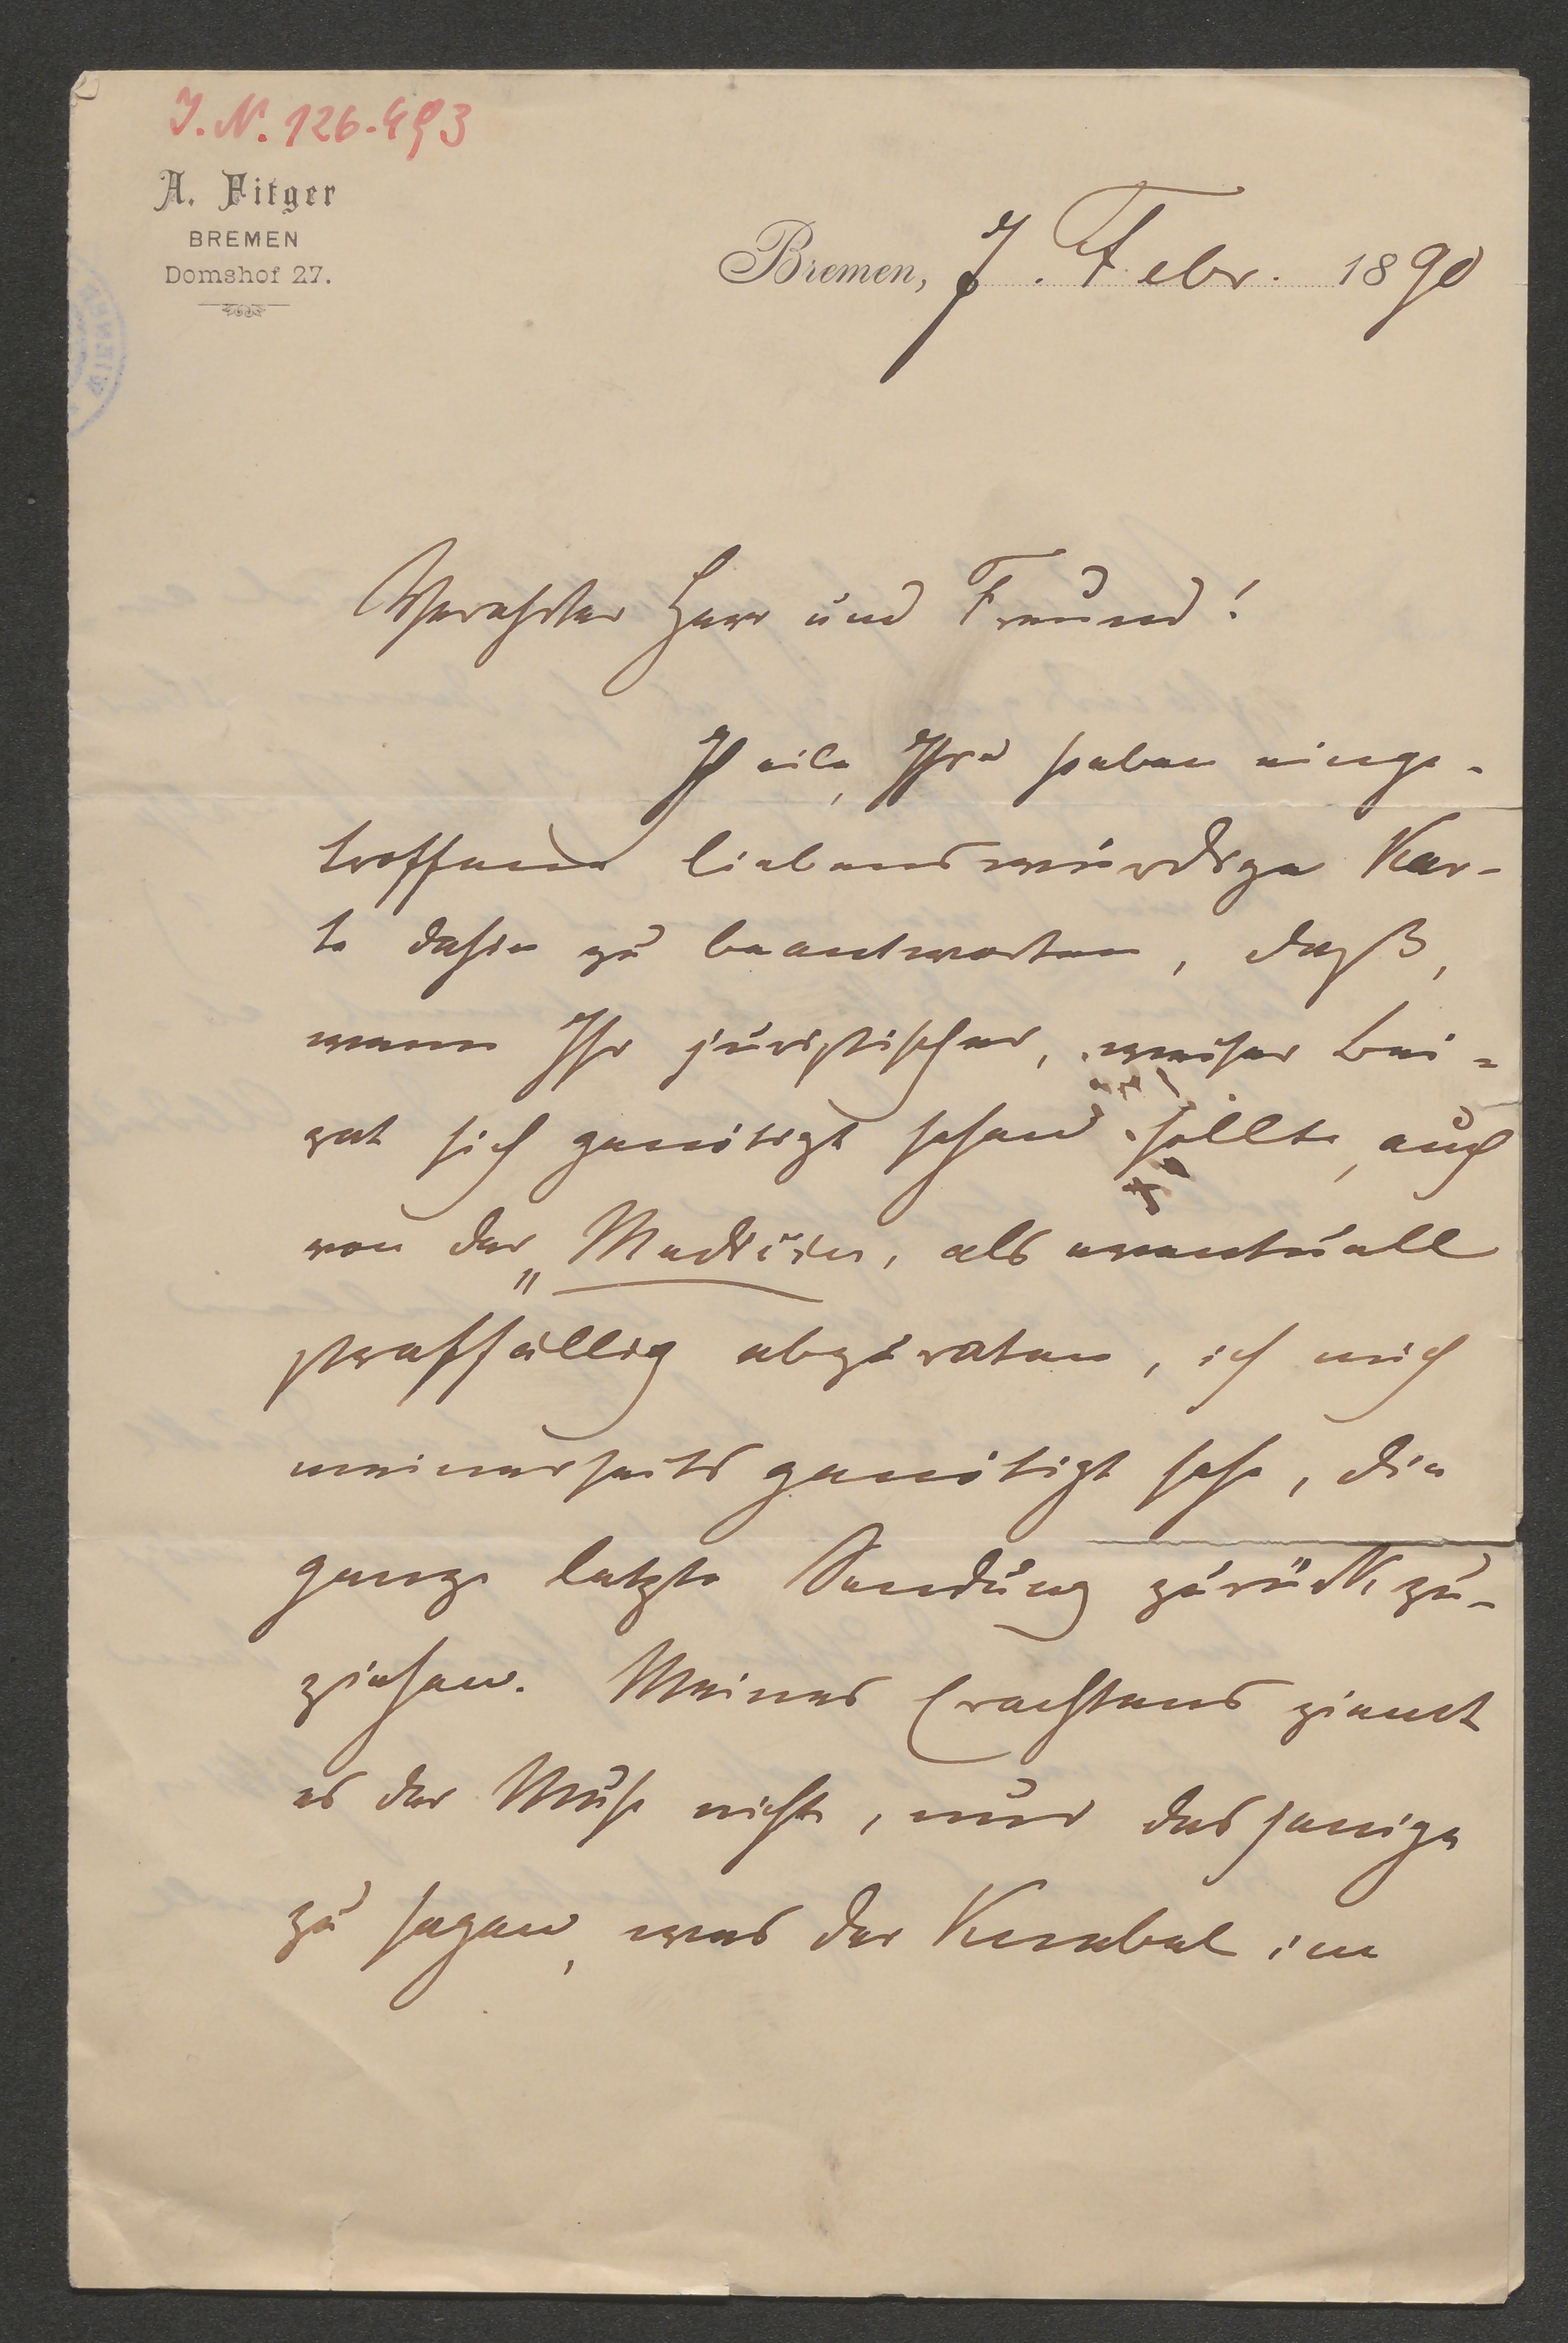 I. N. 126.493
A. Fitger
BREMEN
Domshof 27.
Bremen, 7. Febr. 1890
Verehrter Herr und Freund!
Ich eile, Ihre soeben einge-
troffene liebenswürdige Kar-
te dahin zu beantworten, daß,
wenn Ihr juristischer, weiser Bei-
rat sich genötigt sehen sollte, auch
von der „Medicin, als eventuell
straffällig abzuraten, ich mich
meinerseits genötigt sehe, die
ganze letzte Sendung zurückzu-
ziehen. Meines Erachtens ziemt
es der Muse nicht, nur dasjenige
zu sagen, was der Knebel im